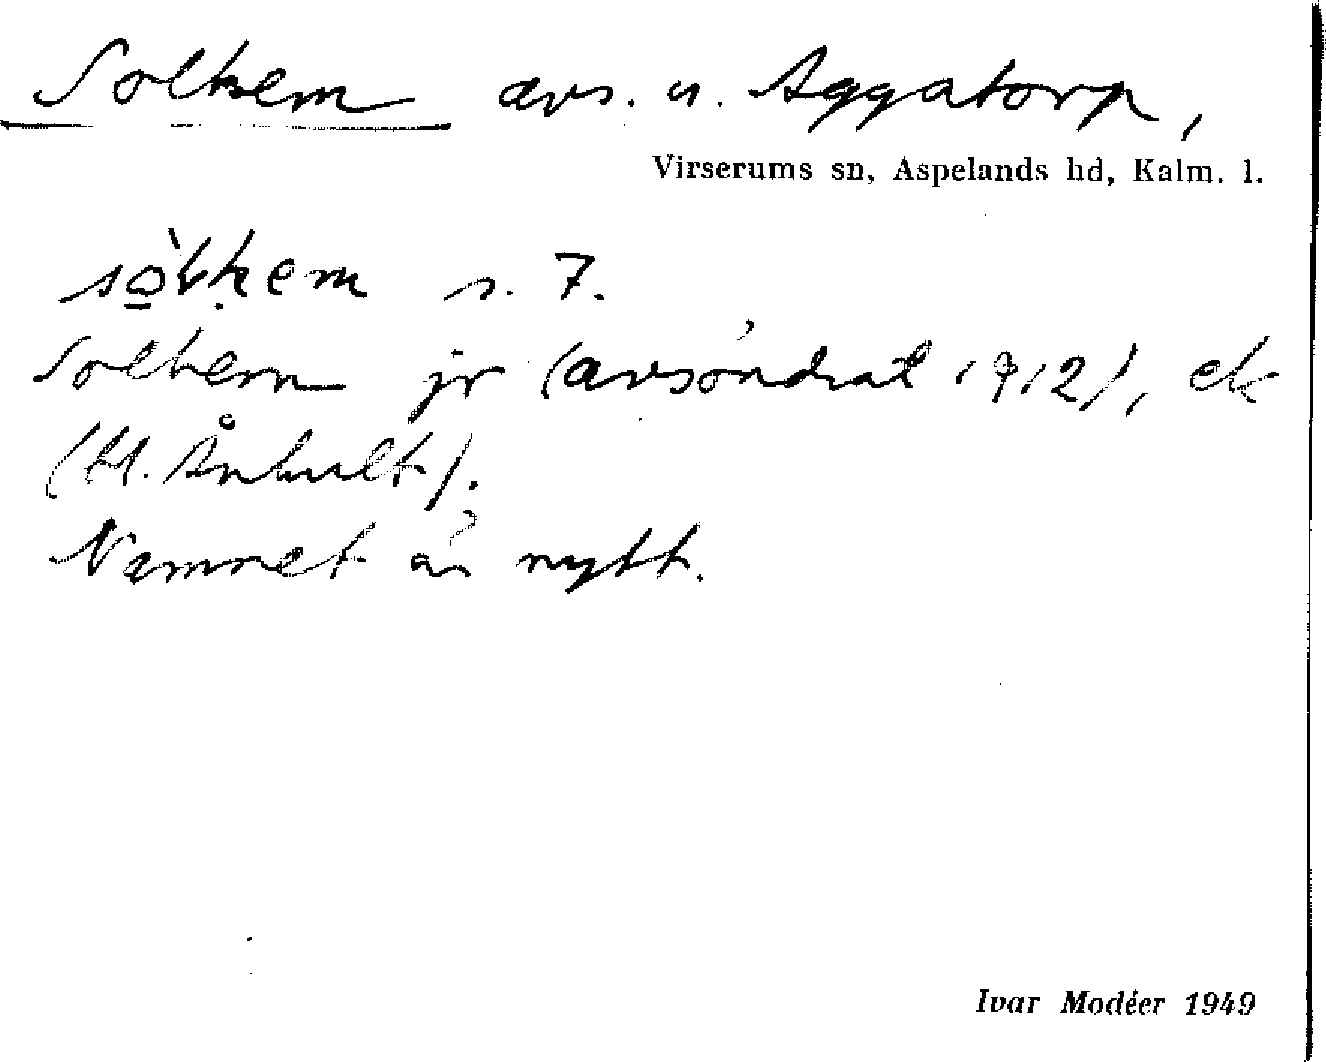 Solhem avs. u. Aggatorp,
Virserums sn, Aspelands hd, Kalm. l.
s. 7.
Solhem jr (avsöndrat 1912), ek
(H. Ånhult).
Namnet är nytt.
Ivar Modéer 1949